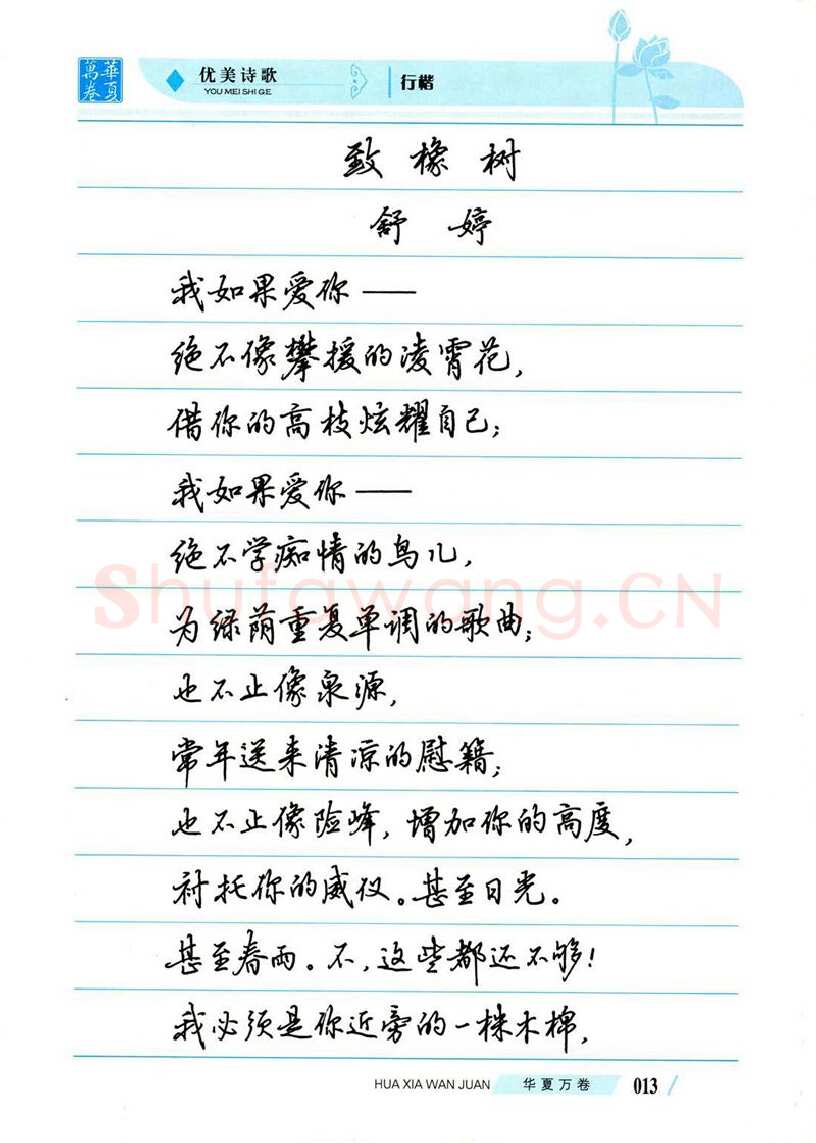 華夏萬卷
优美诗歌
YOU MEI SHI GE
行楷
致橡树
舒婷
我如果爱你——
绝不像攀援的凌霄花,
借你的高枝炫耀自己;
我如果爱你——
绝不学痴情的鸟儿,
为绿荫重复单调的歌曲;
也不止像泉源,
常年送来清凉的慰籍;
也不止像险峰,增加你的高度,
衬托你的威仪。甚至日光。
甚至春雨。不,这些都还不够!
我必须是你近旁的一株木棉,
Shufawang.CN
HUA XIA WAN JUAN
华夏万卷
013